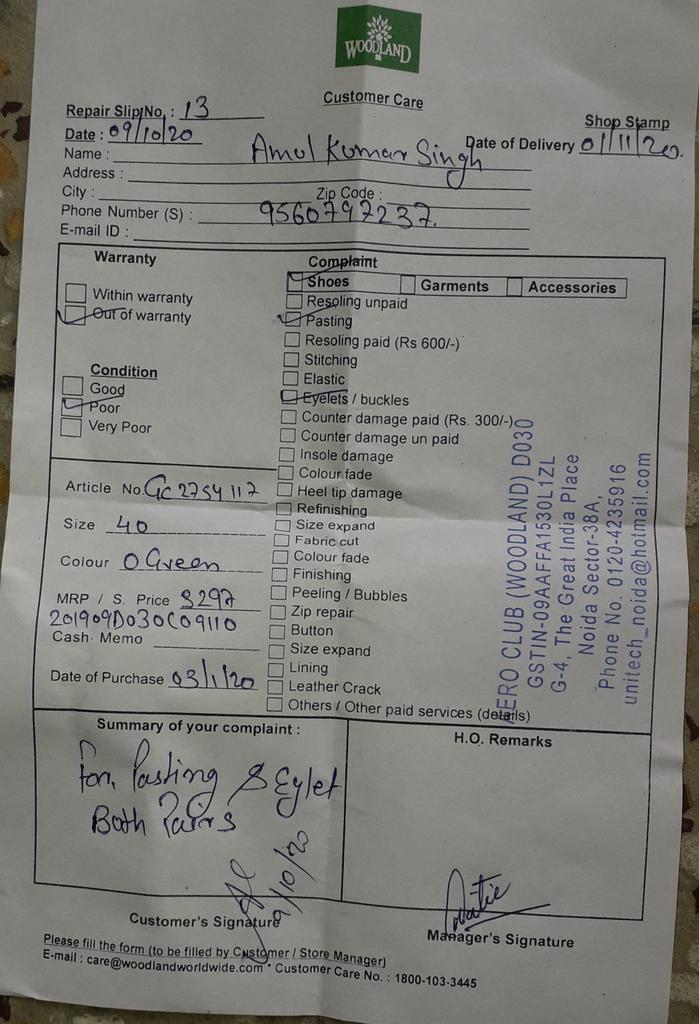 WOODLAND
Customer Care
Repair Slip No. : 13
Shop Stamp
Date : 09/10/20
Date of Delivery 01/11/20.
Name : Amul Kumar Singh
Address :
City : Zip Code :
Phone Number (S) : 9560797237.
E-mail ID :
Warranty
Within warranty
Out of warranty
Condition
Good
Poor
Very Poor
Complaint
Shoes Garments Accessories
Resoling unpaid
Pasting
Resoling paid (Rs 600/-)
Stitching
Elastic
Eyelets / buckles
Counter damage paid (Rs. 300/-)
Counter damage un paid
Insole damage
Colour fade
Heel tip damage
Refinishing
Size expand
Fabric cut
Colour fade
Finishing
Peeling / Bubbles
Zip repair
Button
Size expand
Lining
Leather Crack
Others / Other paid services (details)
Article No. GC 2754117
Size 40
Colour O Green
MRP / S. Price 3297
201909D030C09110
Cash Memo
Date of Purchase 03/1/20
ERO CLUB (WOODLAND) D030
GSTIN-09AAFFA1530L1ZL
G-4, The Great India Place
Noida Sector-38A,
Phone No. 0120-4235916
unitech_noida@hotmail.com
Summary of your complaint :
For Pasting & Eylet
Both Pairs
9/10/20
H.O. Remarks
Customer's Signature
Manager's Signature
Please fill the form (to be filled by Customer / Store Manager)
E-mail : care@woodlandworldwide.com * Customer Care No. : 1800-103-3445